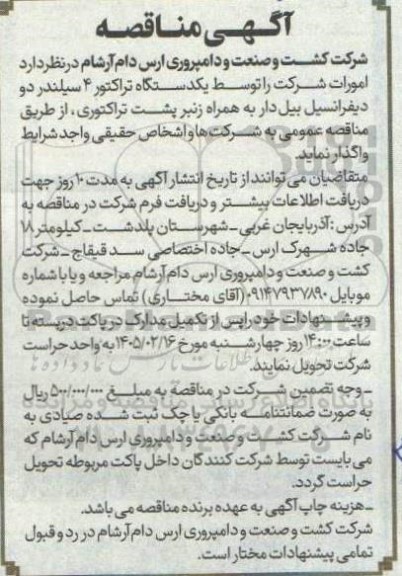 آگهی مناقصه
شرکت کشت و صنعت و دامپروری ارس دام آرشام در نظر دارد
امورات شرکت را توسط یکدستگاه تراکتور ۴ سیلندر دو
دیفرانسیل بیل دار به همراه زنبر پشت تراکتوری، از طریق
مناقصه عمومی به شرکت ها و اشخاص حقیقی واجد شرایط
واگذار نماید.
متقاضیان می توانند از تاریخ انتشار آگهی به مدت ۱۰ روز جهت
دریافت اطلاعات بیشتر و دریافت فرم شرکت در مناقصه به
آدرس: آذربایجان غربی - شهرستان پلدشت - کیلومتر ۱۸
جاده شهرک ارس - جاده اختصاصی سد قیقاج - شرکت
کشت و صنعت و دامپروری ارس دام آرشام مراجعه و یا با شماره
موبایل ۰۹۱۴۷۹۳۷۸۹۰ (آقای مختاری) تماس حاصل نموده
و پیشنهادات خود را پس از تکمیل مدارک در پاکت دربسته تا
ساعت ۱۴:۰۰ روز چهارشنبه مورخ ۱۴۰۵/۰۲/۱۶ به واحد حراست
شرکت تحویل نمایند.
- وجه تضمین شرکت در مناقصه به مبلغ ۵۰۰/۰۰۰/۰۰۰ ریال
به صورت ضمانتنامه بانکی یا چک ثبت شده صیادی به
نام شرکت کشت و صنعت و دامپروری ارس دام آرشام که
می بایست توسط شرکت کنندگان داخل پاکت مربوطه تحویل
حراست گردد.
- هزینه چاپ آگهی به عهده برنده مناقصه می باشد.
شرکت کشت و صنعت و دامپروری ارس دام آرشام در رد و قبول
تمامی پیشنهادات مختار است.